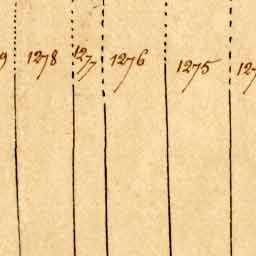 1278 1277 1276 1275